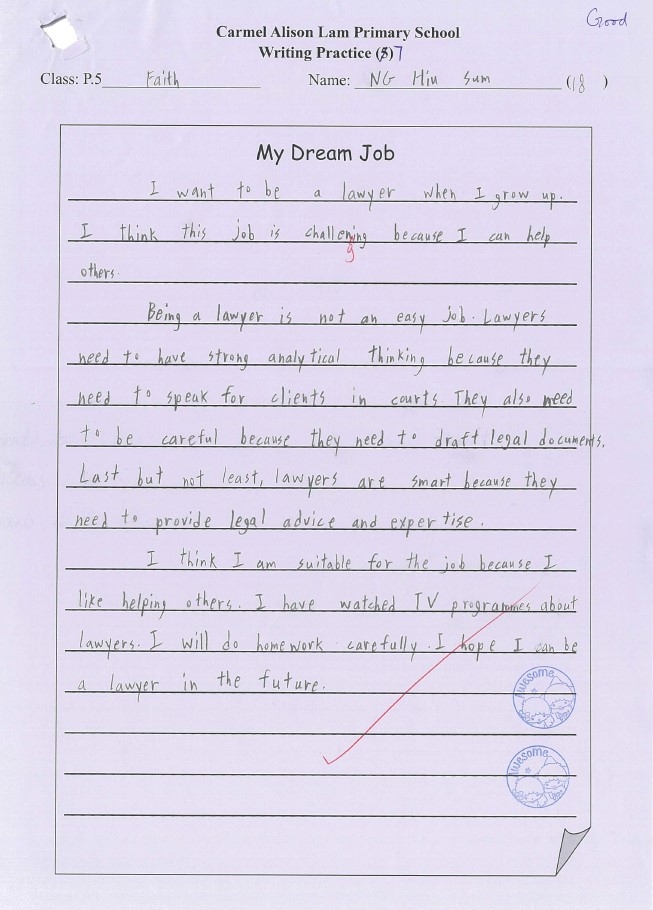 Good
Carmel Alison Lam Primary School
Writing Practice (5)7
Class: P.5 Faith Name: NG Hiu Sum (18)
My Dream Job
I want to be a lawyer when I grow up.
I think this job is challening because I can help
g
others.
Being a lawyer is not an easy job. Lawyers
need to have strong analytical thinking because they
need to speak for clients in courts. They also need
to be careful because they need to draft legal documents.
Last but not least, lawyers are smart because they
need to provide legal advice and expertise.
I think I am suitable for the job because I
like helping others. I have watched TV programmes about
lawyers. I will do homework carefully. I hope I can be
a lawyer in the future.
Awesome
Awesome